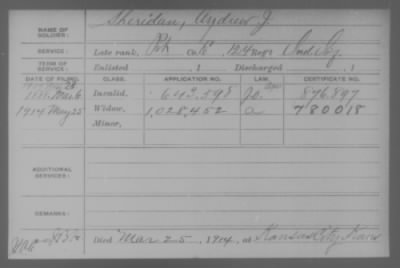 NAME OF SOLDIER: Sheridan, Andrew J.
SERVICE: Late rank, Pvt Co. K, 124 Reg't Ind Inf
TERM OF SERVICE: Enlisted 1 Discharged 1
DATE OF FILING. CLASS. APPLICATION NO. LAW. CERTIFICATE NO.
Mar 6 Invalid. 643,598 876897
1914 May 25 Widow. 1,028,452 a 780018
Minor,
ADDITIONAL SERVICES:
REMARKS:
Died Mar 25, 1914, at Kansas City, Kans